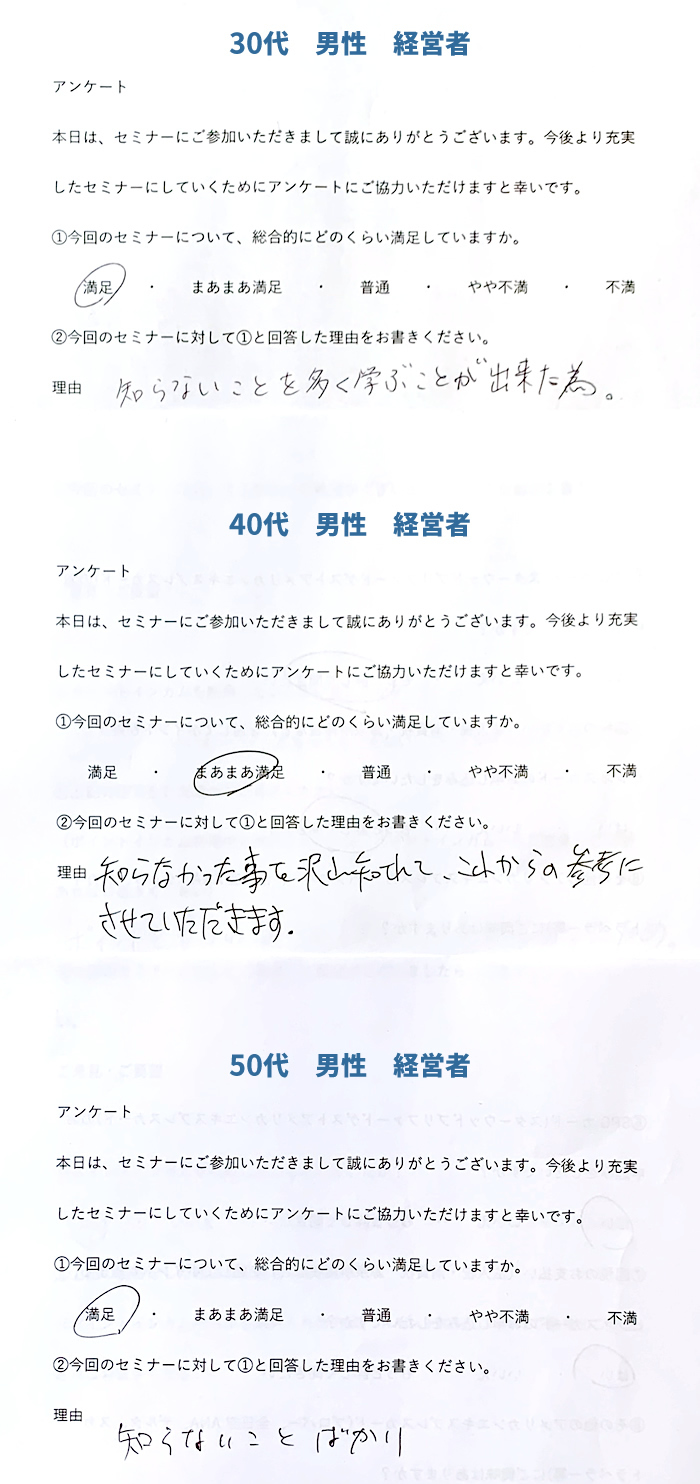 30代　男性　経営者
アンケート
本日は、セミナーにご参加いただきまして誠にありがとうございます。今後より充実
したセミナーにしていくためにアンケートにご協力いただけますと幸いです。
①今回のセミナーについて、総合的にどのくらい満足していますか。
満足　・　まあまあ満足　・　普通　・　やや不満　・　不満
②今回のセミナーに対して①と回答した理由をお書きください。
理由　知らないことを多く学ぶことが出来た為。
40代　男性　経営者
アンケート
本日は、セミナーにご参加いただきまして誠にありがとうございます。今後より充実
したセミナーにしていくためにアンケートにご協力いただけますと幸いです。
①今回のセミナーについて、総合的にどのくらい満足していますか。
満足　・　まあまあ満足　・　普通　・　やや不満　・　不満
②今回のセミナーに対して①と回答した理由をお書きください。
理由　知らなかった事を沢山知れて、これからの参考に
させていただきます.
50代　男性　経営者
アンケート
本日は、セミナーにご参加いただきまして誠にありがとうございます。今後より充実
したセミナーにしていくためにアンケートにご協力いただけますと幸いです。
①今回のセミナーについて、総合的にどのくらい満足していますか。
満足　・　まあまあ満足　・　普通　・　やや不満　・　不満
②今回のセミナーに対して①と回答した理由をお書きください。
理由　知らないことばかり